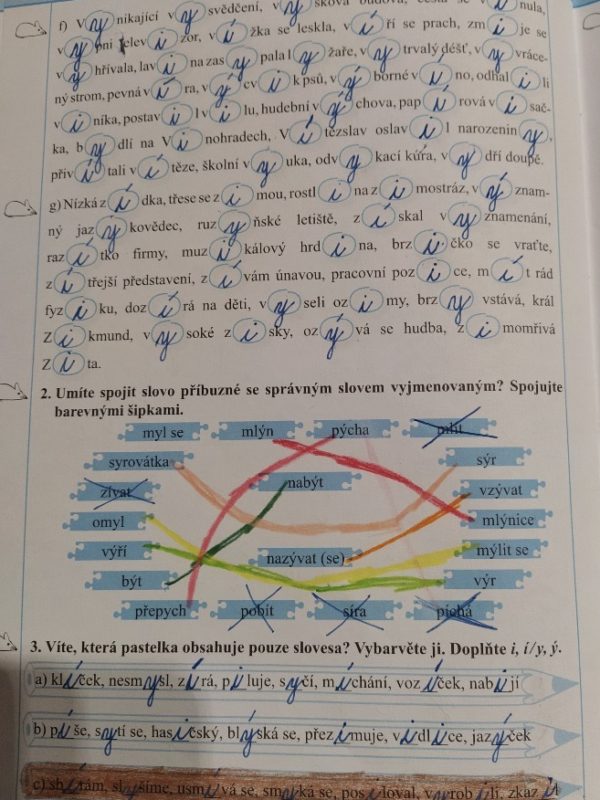 f) Vynikající vysvědčení, nula,
zor, vížka se leskla, víří se prach, zmije se
vyhřívala, lavina zasypala lyžaře, vytrvalý déšť, vyvráce-
ný strom, pevná víra, výcvik psů, výborné víno, odhalili
viníka, postavil vilu, hudební výchova, papírová visač-
ka, bydlí na Vinohradech, Vítězslav oslavil narozeniny,
přivítali vítěze, školní výuka, odvykací kúra, vydří doupě.
g) Nízká zídka, třese se zimou, rostlina zimostráz, význam-
ný jazykovědec, ruzyňské letiště, získal vyznamenání,
razítko firmy, muzikálový hrdina, brzičko se vraťte,
zítřejší představení, zívám únavou, pracovní pozice, mít rád
fyziku, dozírá na děti, veseli ozimy, brzy vstává, král
Zikmund, vysoké zisky, ozývá se hudba, zimomřivá
Zita.
2. Umíte spojit slovo příbuzné se správným slovem vyjmenovaným? Spojujte
barevnými šipkami.
myl se mlýn pýcha mlít
syrovátka sýr
zívat nabýt vzývat
omyl mlýnice
výří nazývat (se) mýlit se
být výr
přepych pobít síra píchá
3. Víte, která pastelka obsahuje pouze slovesa? Vybarvěte ji. Doplňte i, í/y, ý.
a) klíček, nesmysl, zírá, piluje, syčí, míchání, vozíček, nabijí
b) píše, sytí se, hasičský, blýská se, přezimuje, vidlice, jazýček
c) sbírám, slyšíme, usmívá se, smýká se, posiloval, vyrobili, zkazit